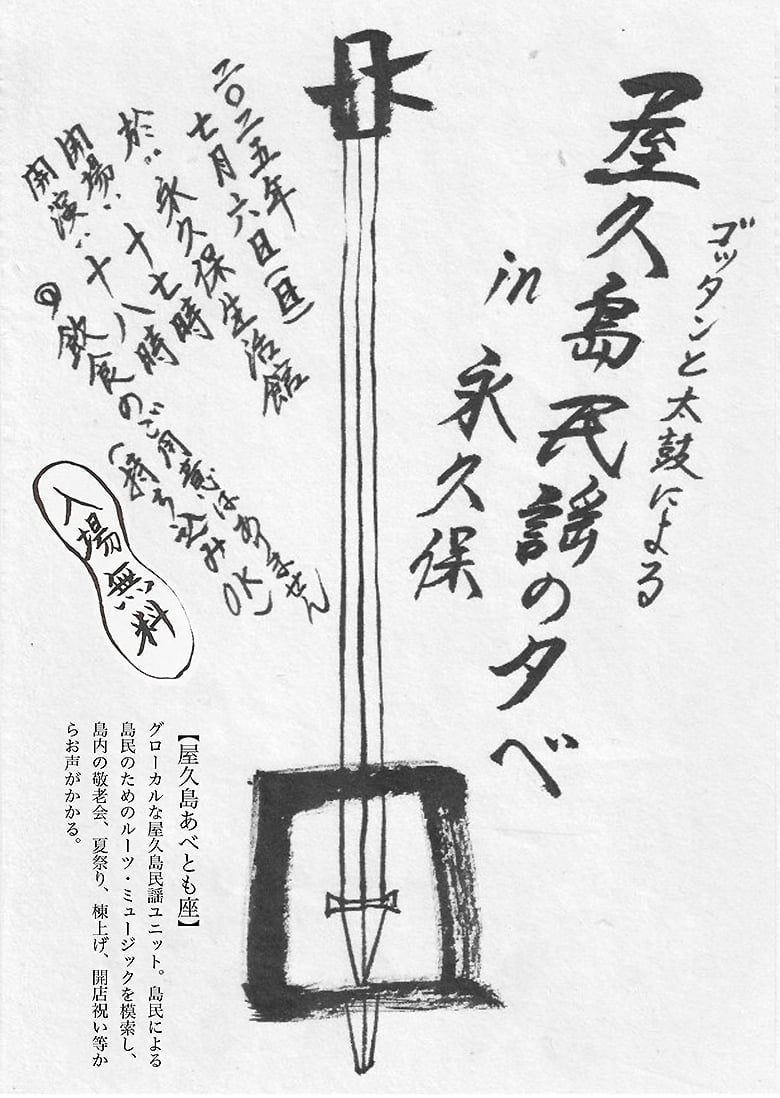 ゴッタンと太鼓による
屋久島民謡の夕べ
in 永久保
二〇二五年
七月六日(日)
於:永久保生活館
開場:十七時
開演:十八時
◎飲食のご用意はありません
(持ち込みOK)
入場無料
【屋久島あべとも座】
グローカルな屋久島民謡ユニット。島民による
島民のためのルーツ・ミュージックを模索し、
島内の敬老会、夏祭り、棟上げ、開店祝い等か
らお声がかかる。